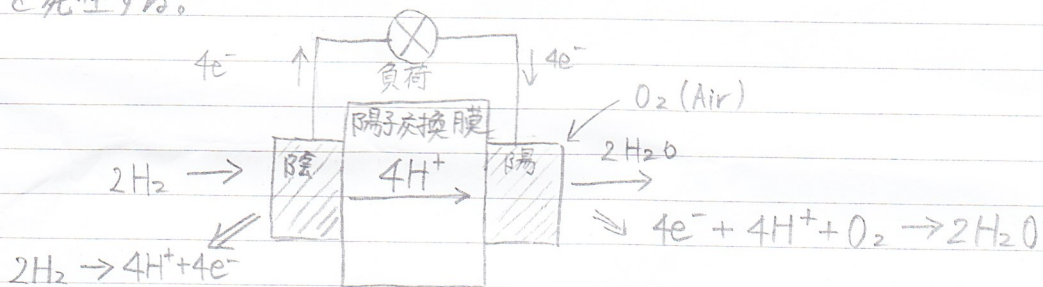 と発生する。
4e⁻
4e⁻
負荷
O₂ (Air)
陽子交換膜
陰
陽
2H₂
4H⁺
2H₂O
4e⁻ + 4H⁺ + O₂ → 2H₂O
2H₂ → 4H⁺+4e⁻